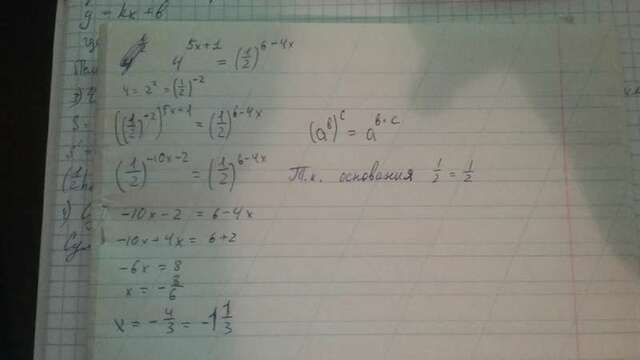 y = kx + b
4^{5x+1} = (1/2)^{6-4x}
4 = 2² = (1/2)^{-2}
((1/2)^{-2})^{5x+1} = (1/2)^{6-4x} (a^b)^c = a^{b·c}
(1/2)^{-10x-2} = (1/2)^{6-4x} Т.к. основания 1/2 = 1/2
-10x-2 = 6-4x
-10x+4x = 6+2
-6x = 8
x = -8/6
x = -4/3 = -1 1/3